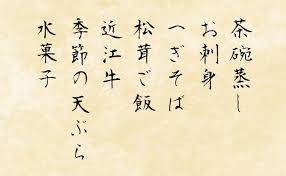 茶碗蒸し
お刺身
へぎそば
松茸ご飯
近江牛
季節の天ぷら
水菓子